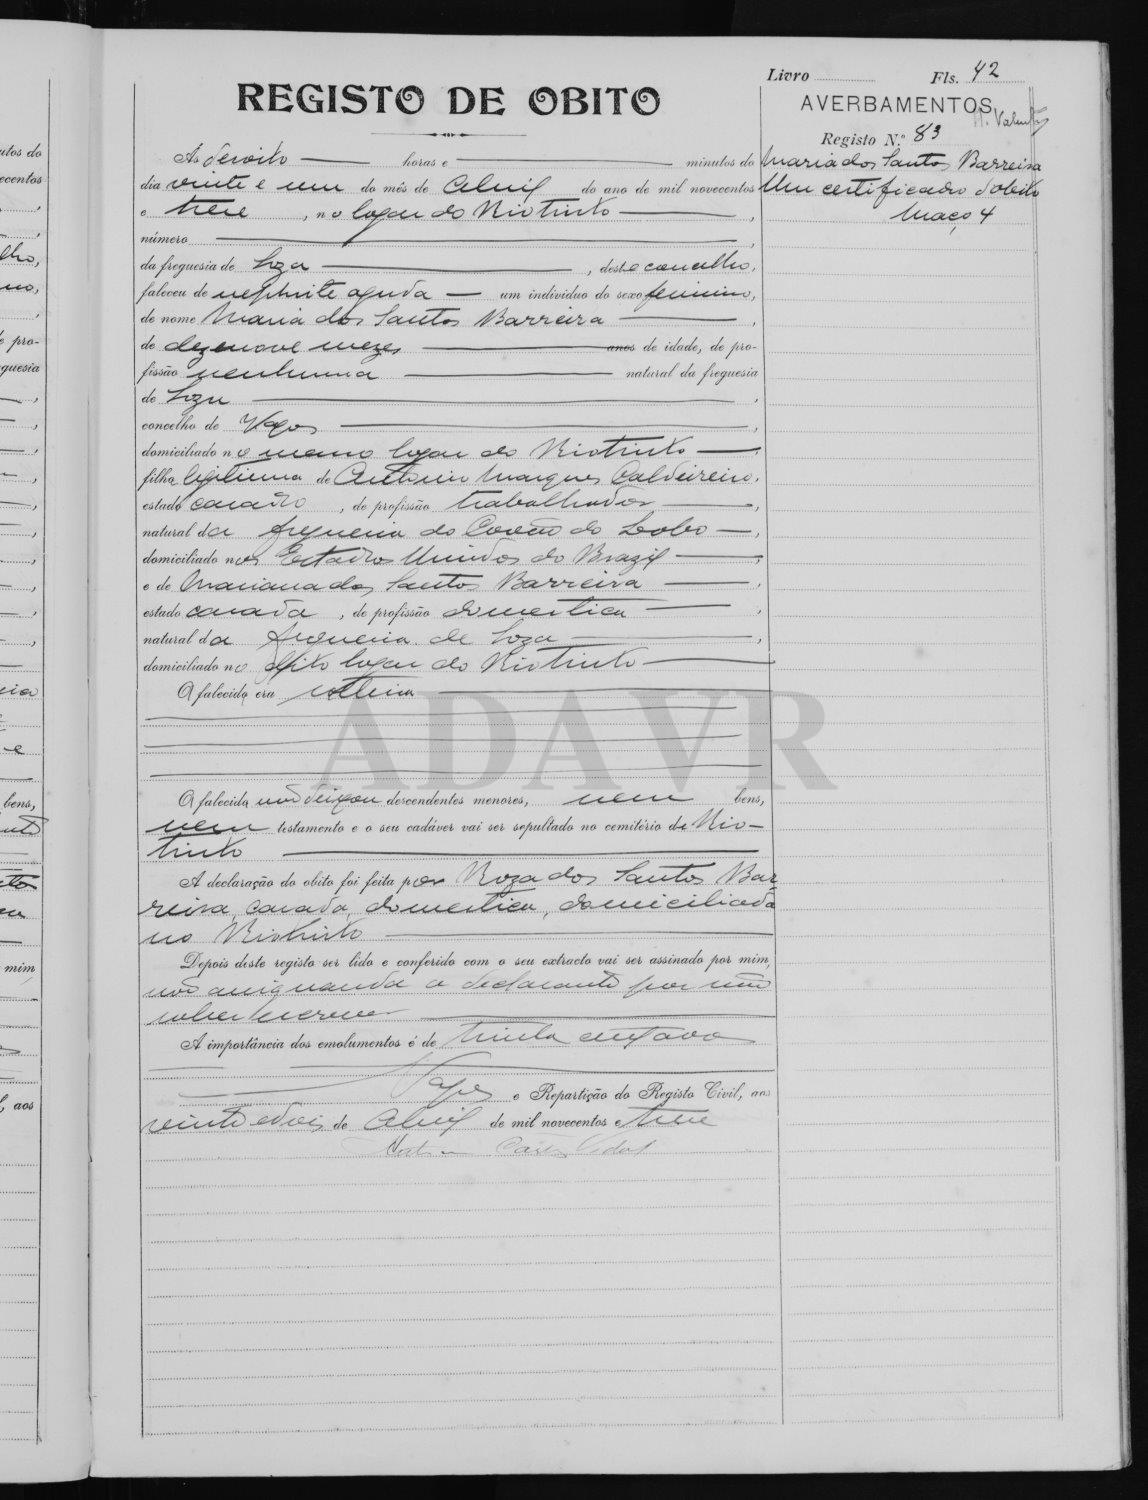 Livro Fls. 42
REGISTO DE OBITO
AVERBAMENTOS
Registo N.º 83
Maria dos Santos Barreira
Um certificado d'obito
Maço 4
Ás dezoito horas e minutos do
dia vinte e um do mês de Abril do ano de mil novecentos
e treze, no logar do Riotinto,
número
da freguesia de Soza, deste concelho,
faleceu de nephrite aguda um individuo do sexo feminino,
de nome Maria dos Santos Barreira,
de dezenove mezes anos de idade, de pro-
fissão nenhuma natural da freguesia
de Soza,
concelho de Vagos,
domiciliado no mesmo logar do Riotinto,
filha legitima de Antonio Marques Caldeireiro,
estado casado, de profissão trabalhador,
natural da freguesia do Covão do Lobo,
domiciliado nos Estados Unidos do Brazil,
e de Mariana dos Santos Barreira,
estado casada, de profissão domestica,
natural da freguesia de Soza,
domiciliado no dito logar do Riotinto
A falecida era solteira
A falecida não deixou descendentes menores, nem bens,
nem testamento e o seu cadáver vai ser sepultado no cemitério de Rio-
tinto
A declaração do obito foi feita por Roza dos Santos Bar-
reira, casada, domestica, domiciliada
no Riotinto
Depois deste registo ser lido e conferido com o seu extracto vai ser assinado por mim,
não assignando a declarante por não
saber escrever
A importância dos emolumentos é de trinta centavos
Vagos e Repartição do Registo Civil, aos
vinte e dois de Abril de mil novecentos e treze
Vidal
ADAVR
utos do
ecentos
pro-
guesia
bens,
mim,
aos